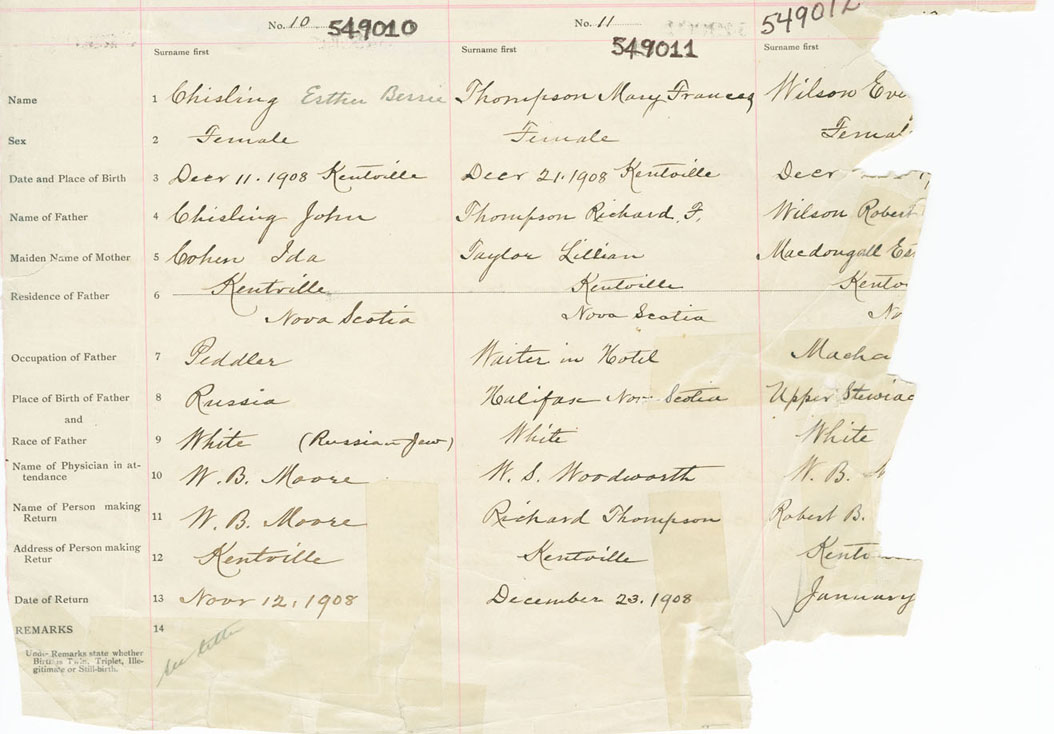 No. 10 549010 No. 11 549011 549012
Surname first Surname first Surname first
Name 1 Chisling Esther Bessie Thompson Mary Frances Wilson Eve
Sex 2 Female Female Femal
Date and Place of Birth 3 Decr 11. 1908 Kentville Decr 21. 1908 Kentville Decr
Name of Father 4 Chisling John Thompson Richard. F. Wilson Robert
Maiden Name of Mother 5 Cohen Ida Taylor Lillian Macdougall Es
Residence of Father 6 Kentville Kentville Kentv
Nova Scotia Nova Scotia No
Occupation of Father 7 Peddler Waiter in Hotel Macha
Place of Birth of Father 8 Russia Halifax Nova Scotia Upper Stewiac
and
Race of Father 9 White (Russian Jew) White White
Name of Physician in at-
tendance 10 W. B. Moore W. S. Woodworth W. B. M
Name of Person making
Return 11 W. B. Moore Richard Thompson Robert B.
Address of Person making
Retur 12 Kentville Kentville Kentv
Date of Return 13 Novr 12, 1908 December 23. 1908 January
REMARKS 14
Under Remarks state whether
Birth is Twin, Triplet, Ille-
gitimate or Still-birth.
see letter